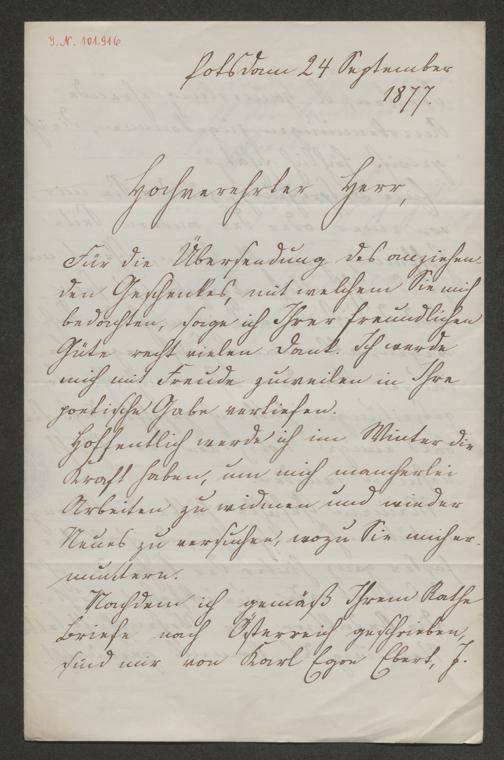 I. N. 101.916
Potsdam 24 September
1877.
Hochverehrter Herr,
Für die Übersendung des anziehen-
den Geschenkes, mit welchem Sie mich
bedachten, sage ich Ihrer freundlichen
Güte recht vielen Dank. Ich werde
mich mit Freude zuweilen in Ihre
poetische Gabe vertiefen.
Hoffentlich werde ich im Winter die
Kraft haben, um mich mancherlei
Arbeiten zu widmen und wieder
Neues zu versuchen, wozu Sie mich er-
muntern.
Nachdem ich gemäß Ihrem Rathe
Briefe nach Österreich geschrieben,
sind mir von Karl Egon Ebert, J.